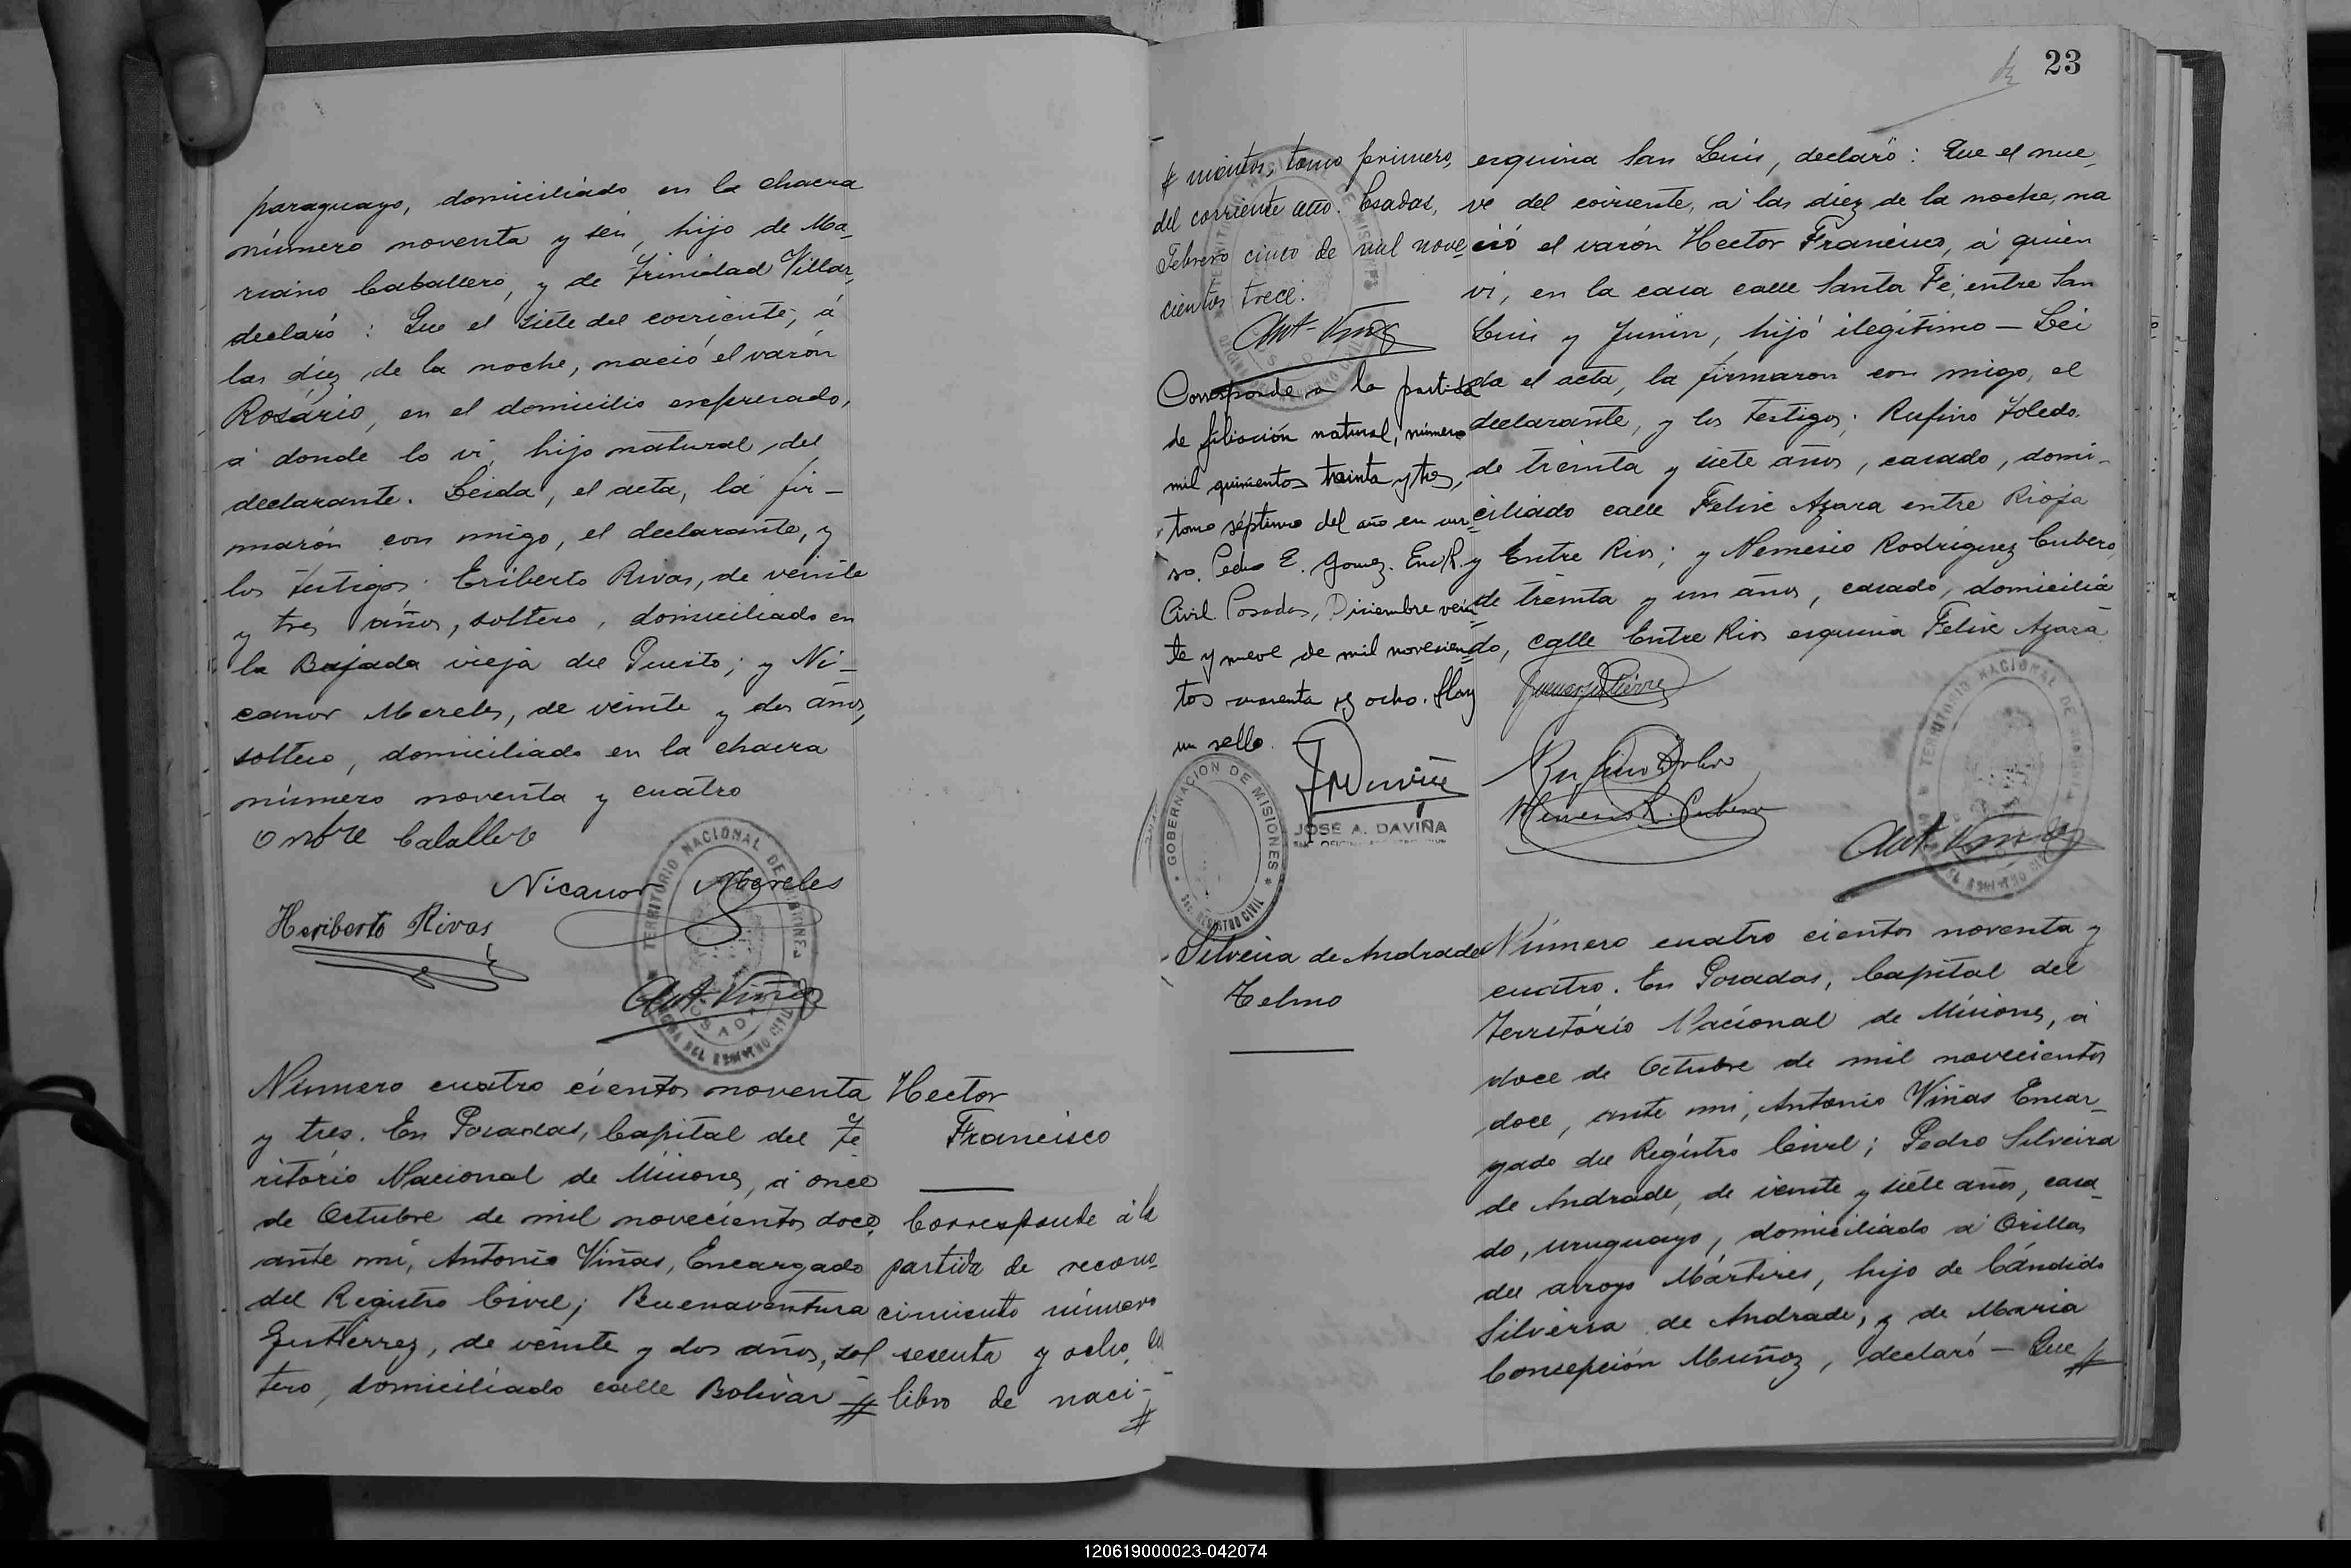 paraguayo, domiciliado en la chacra
número noventa y seis, hijo de Ma-
riano Caballero, y de Trinidad Villar,
declaró: Que el siete del corriente, á
las diez de la noche, nació el varón
Rosário, en el domicilio expresado,
á donde lo vi, hijo natural, del
declarante. Leida, el acta, la fir-
marón con migo, el declarante, y
los testigos; Eriberto Rivas, de veinte
y tres años, soltero, domiciliado en
la Bajada vieja del Puerto; y Ni-
canor Mereles, de veinte y dos años,
soltero, domiciliado en la chacra
número noventa y cuatro
Caballero
Nicanor Mereles
Heriberto Rivas
Ant. Viñas
TERRITORIO NACIONAL DE MISIONES
Número cuatro cientos noventa
y tres. En Posadas, Capital del Te
ritório Nacional de Misiones, á once
de Octubre de mil novecientos doce,
ante mi, Antonio Viñas, Encargado
del Registro Civil; Buenaventura
Gutierrez, de veinte y dos años, sol
tero, domiciliado calle Bolivar #
Hector
Francisco
Corresponde á la
partida de recono-
cimiento número
sesenta y ocho, del
libro de naci-
#
23
# mientos, tomo primero,
del corriente año. Posadas,
Febrero cinco de mil nove-
cientos trece.
Ant. Viñas
Corresponde a la partida
de filiación natural, número
mil quinientos treinta y tres,
tomo séptimo del año en cur-
so. Pedro E. Gomez. Enc. R.
Civil. Posadas, Diciembre vein-
te y nueve de mil novecien-
tos cuarenta y ocho. Hay
un sello.
JOSÉ A. DAVIÑA
GOBERNACION DE MISIONES
REGISTRO CIVIL
esquina San Luis, declaró: Que el nue-
ve del corriente, á las diez de la noche, na
ció el varón Hector Francisco, á quien
vi, en la casa calle Santa Fé, entre San
Luis y Junin, hijo ilegitimo — Lei
da el acta, la firmaron con migo, el
declarante, y los testigos; Rufino Toledo.
de treinta y siete años, casado, domi-
ciliado calle Felix Azara entre Rioja
y Entre Rios; y Nemesio Rodriguez Cubero,
de treinta y un años, casado, domicilia
do, calle Entre Rios esquina Felix Azara
Nemesio R. Cubero
Ant. Viñas
TERRITORIO NACIONAL DE MISIONES
Silveira de Andrade
Telmo
Número cuatro cientos noventa y
cuatro. En Posadas, Capital del
Território Nacional de Misiones, á
doce de Octubre de mil novecientos
doce, ante mi, Antonio Viñas Encar-
gado del Registro Civil; Pedro Silveira
de Andrade, de veinte y siete años, casa-
do, uruguayo, domiciliado á Orillas
del arroyo Mártires, hijo de Cándido
Silveira de Andrade, y de Maria
Concepción Muñoz, declaró — Que #
120619000023-042074